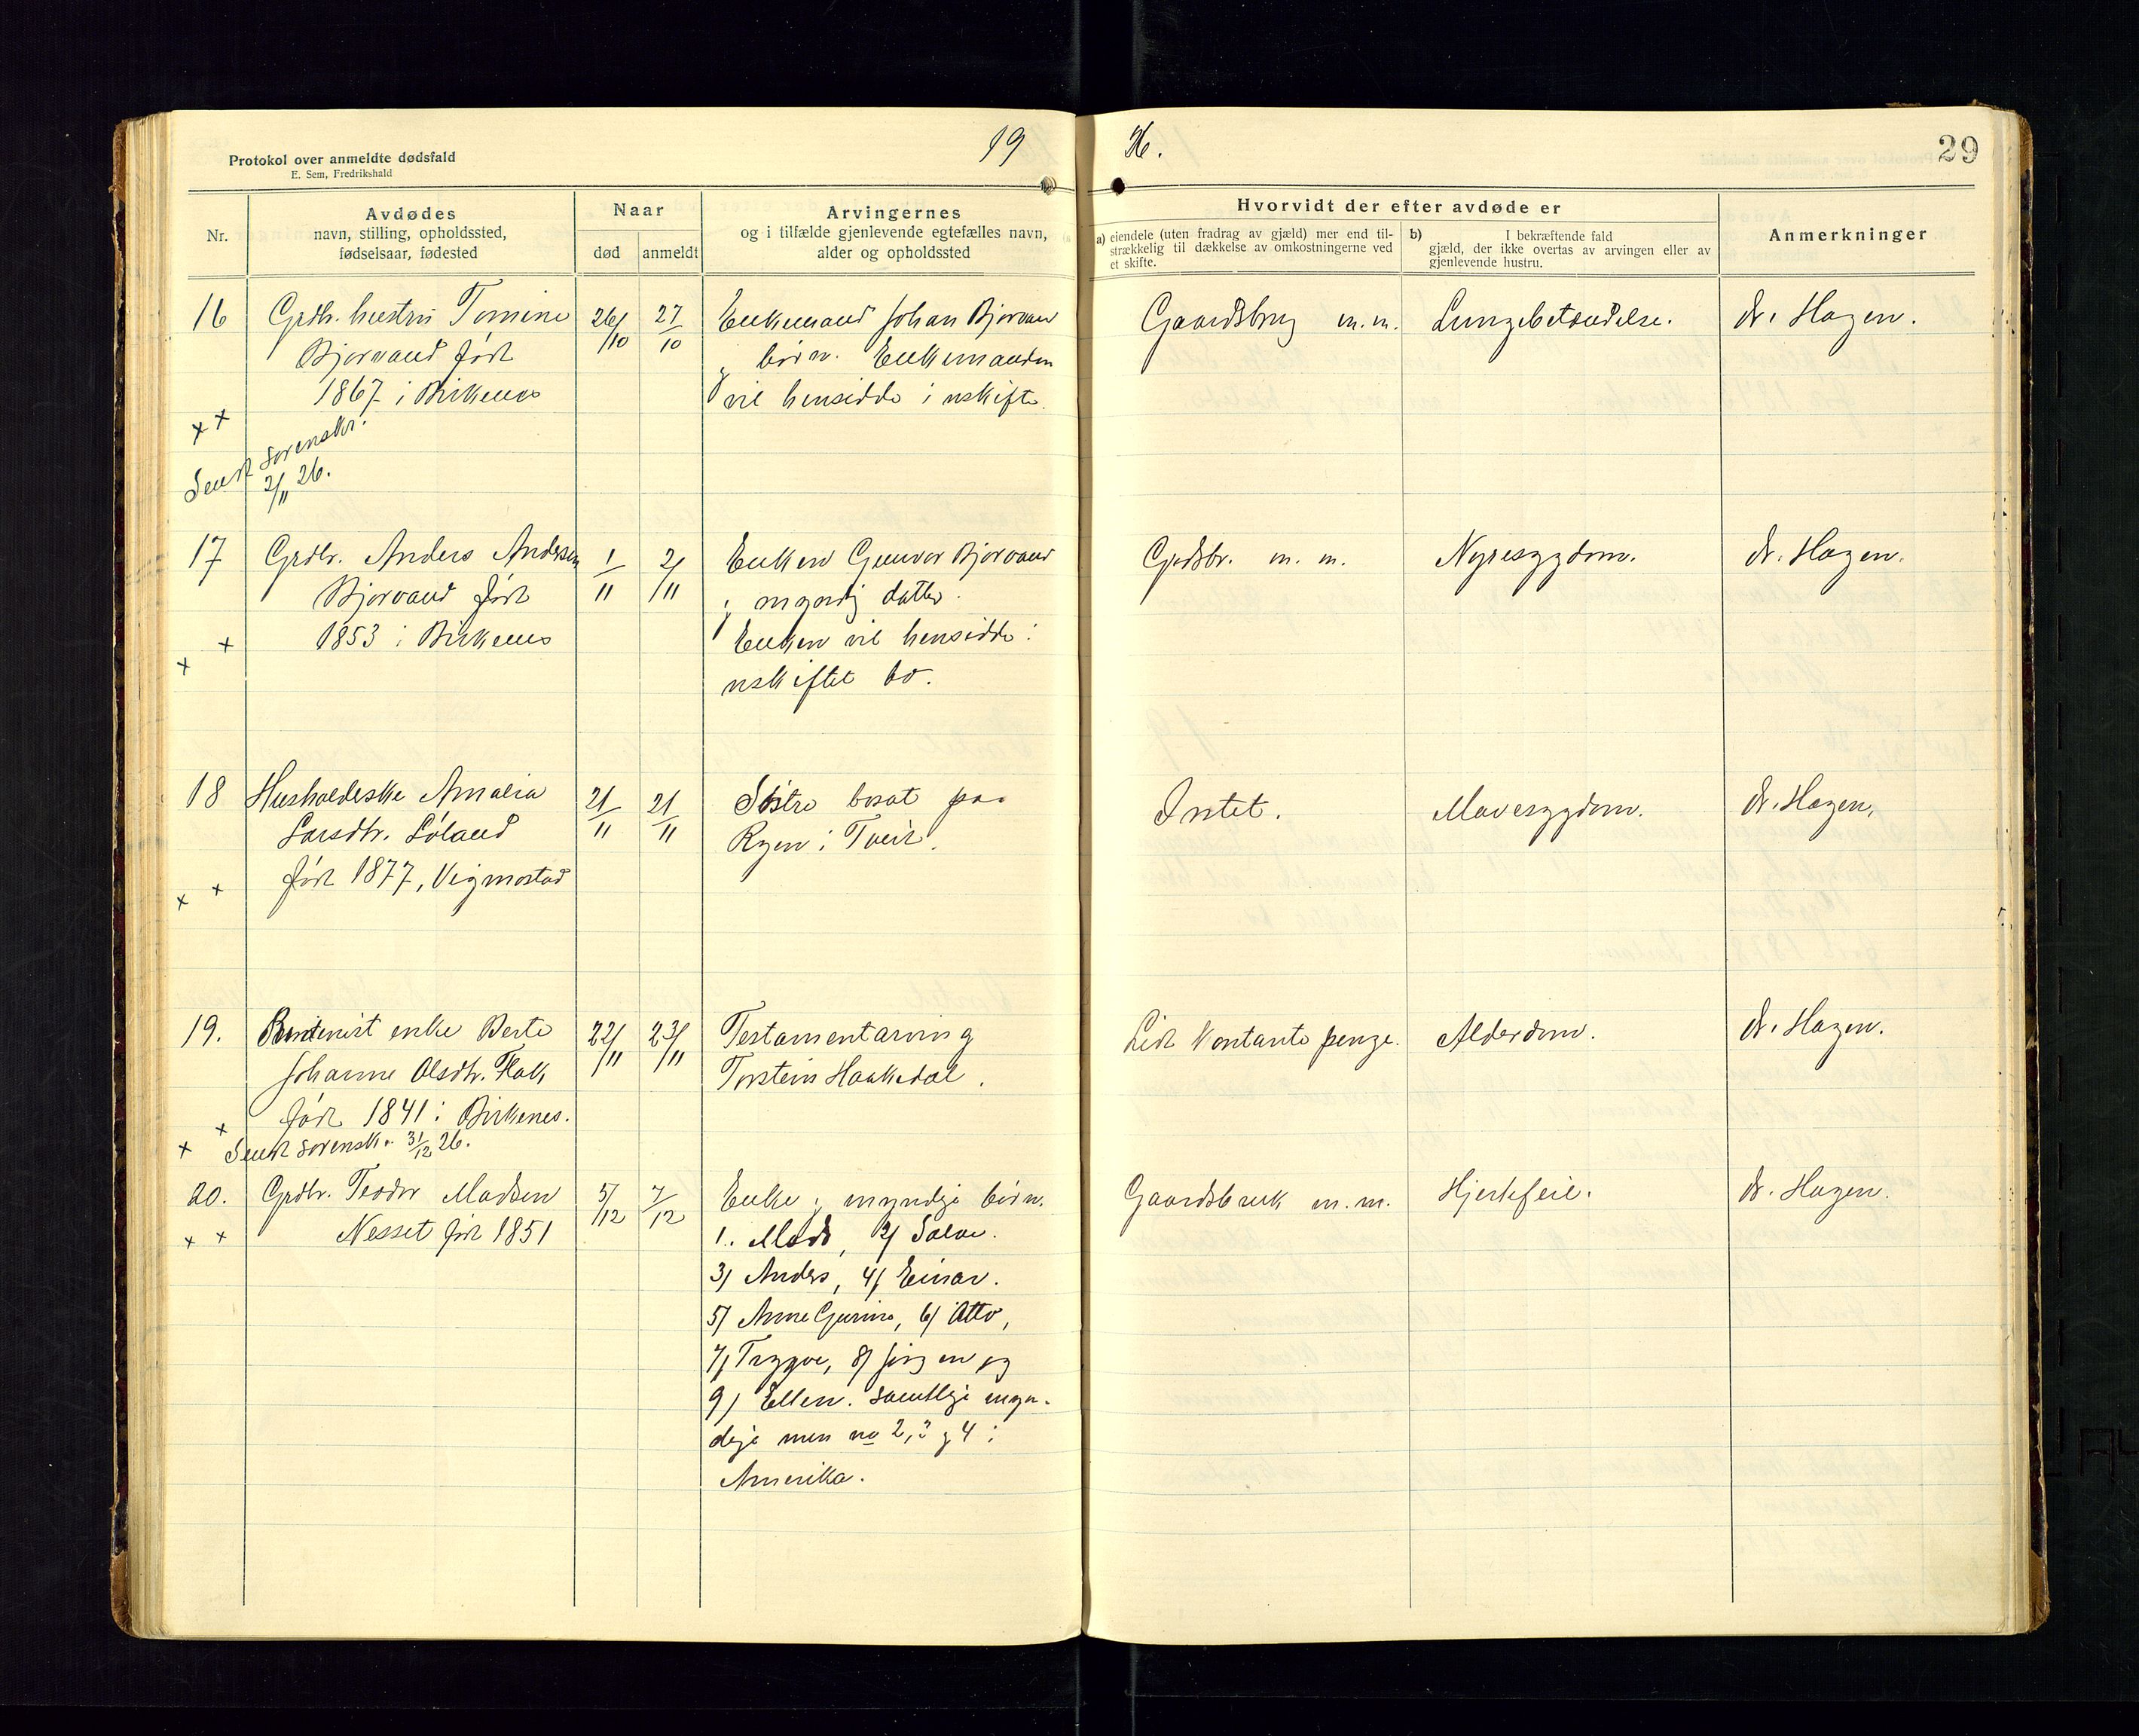 Protokol over anmeldte dødsfald
E. Sem, Fredrikshald
19
26.
29
Nr.
Avdødes
navn, stilling, opholdssted,
fødselsaar, fødested
Naar
død
anmeldt
Arvingernes
og i tilfælde gjenlevende egtefælles navn,
alder og opholdssted
Hvorvidt der efter avdøde er
a) eiendele (uten fradrag av gjæld) mer end til-
strækkelig til dækkelse av omkostningerne ved
et skifte.
b) I bekræftende fald
gjæld, der ikke overtas av arvingen eller av
gjenlevende hustru.
Anmerkninger
16
Grdb. hustru Tomine
Bjorvand født
1867 i Birkenes
x x
Sendt sorenskr.
2/11 26.
26/10
27/10
Enkemand Johan Bjorvand
og børn. Enkemanden
vil hensidde i uskifte.
Gaardsbrug m.m.
Lungebetændelse.
dr. Hagen.
17
Grdbr. Anders Andersen
Bjorvand født
1853 i Birkenes
x x
1/11
2/11
Enken Gunvor Bjorvand
og myndig datter.
Enken vil hensidde i
uskiftet bo.
Grdsbr. m. m.
Nyresygdom.
dr. Hagen.
18
Husholderske Amalia
Larsdtr. Løland
født 1877, Vigmostad
x x
21/11
21/11
Søstre bosat paa
Ryen i Tveit.
Intet.
Mavesygdom.
dr. Hagen.
19.
enke Berte
Johanne Olsdtr. Flak
født 1841 i Birkenes.
x x Sendt sorenskr. 31/12 26.
22/11
23/11
Testamentarving
Torstein Haakedal.
Lidt kontante penge.
Alderdom.
dr. Hagen.
20.
Grdbr. Teodor Madsen
Nesset født 1851
x x
5/12
7/12
Enke og myndige børn.
1. Mads, 2) Salve.
3) Anders, 4) Einar.
5) Anne Gurine, 6) Otto,
7) Trygve, 8) Jørgen og
9) Ellen. Samtlige myn-
dige men no 2, 3 og 4 i
Amerika.
Gaardsbruk m.m.
Hjertefeil.
dr. Hagen.